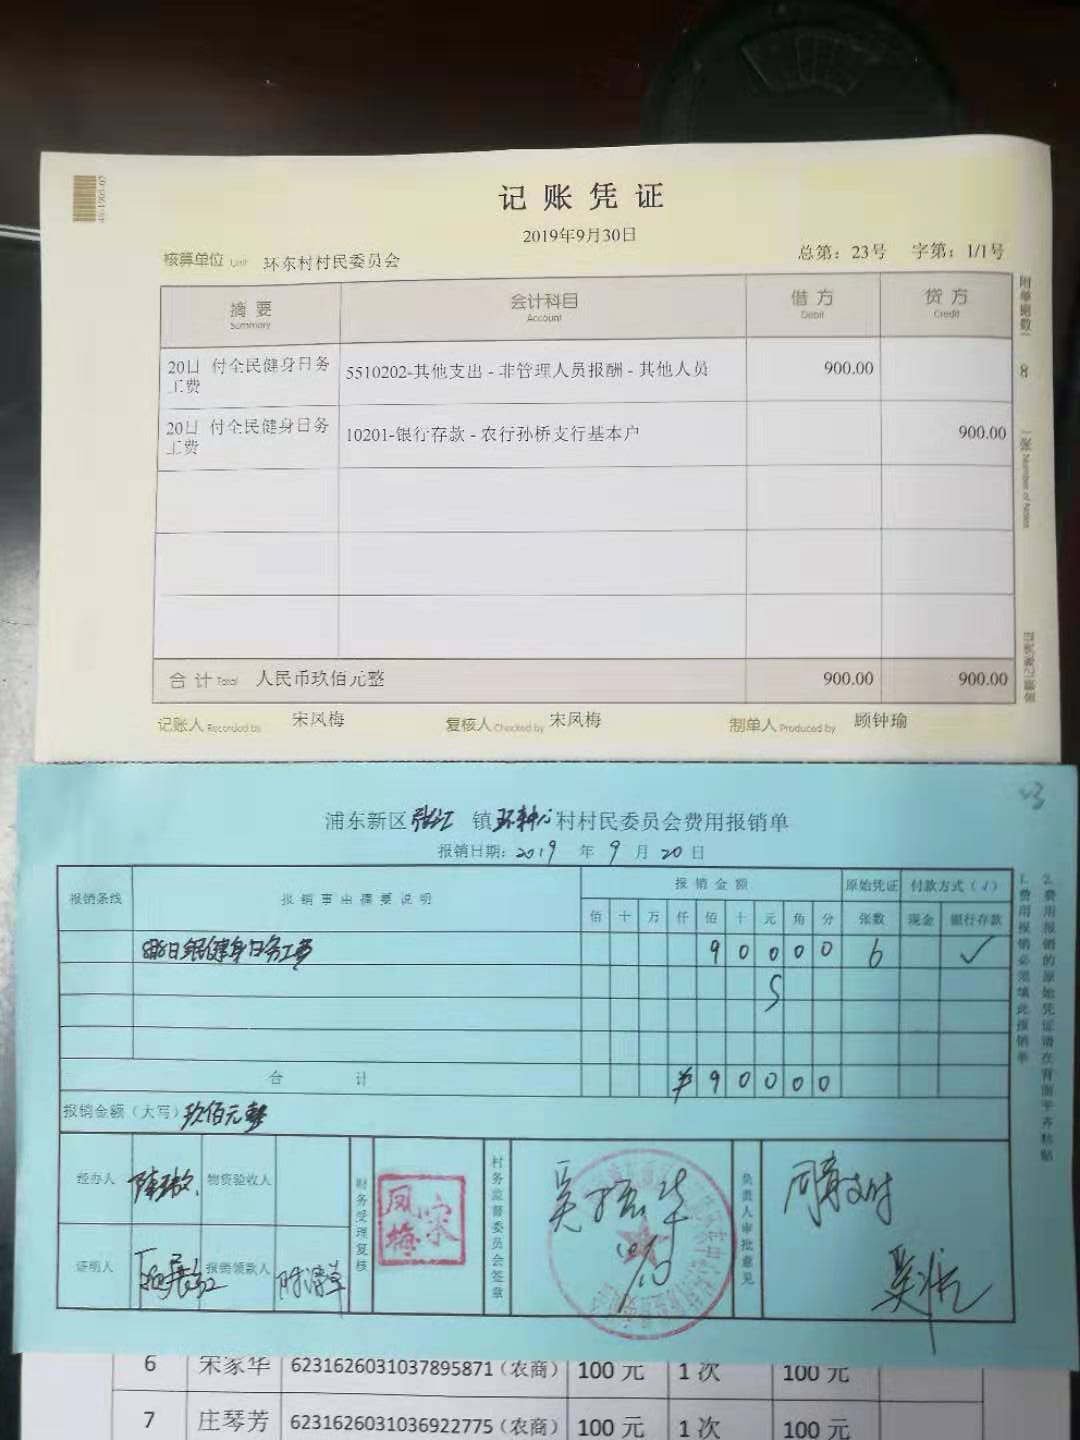 记账凭证
2019年9月30日
核算单位 Unit 环东村村民委员会 总第：23号 字第：1/1号
摘要 会计科目 借方 贷方
Summary Account Debit Credit
20日 付全民健身日务 5510202-其他支出 - 非管理人员报酬 - 其他人员 900.00
工费
20日 付全民健身日务 10201-银行存款 - 农行孙桥支行基本户 900.00
工费
合计 Total 人民币玖佰元整 900.00 900.00
记账人 Recorded by 宋凤梅 复核人 Checked by 宋凤梅 制单人 Produced by 顾钟瑜
附单据数 8 张
23
浦东新区张江镇环东村村民委员会费用报销单
报销日期：2019年9月20日
报销条线 报销事由摘要说明 报销金额 原始凭证 付款方式（√）
佰 十 万 仟 佰 十 元 角 分 张数 现金 银行存款
健身日务工费 9 0 0 0 0 6 ✓
合计 ¥ 9 0 0 0 0
报销金额（大写）玖佰元整
经办人 物资验收人 财务受理复核 凤梅宋 村务监督委员会签章 负责人审批意见 同意支付
证明人 报销领款人
1. 费用报销必须填此报销单
2. 费用报销的原始凭证请在背面平齐粘贴
6 宋家华 6231626031037895871（农商） 100 元 1 次 100 元
7 庄琴芳 6231626031036922775（农商） 100 元 1 次 100 元